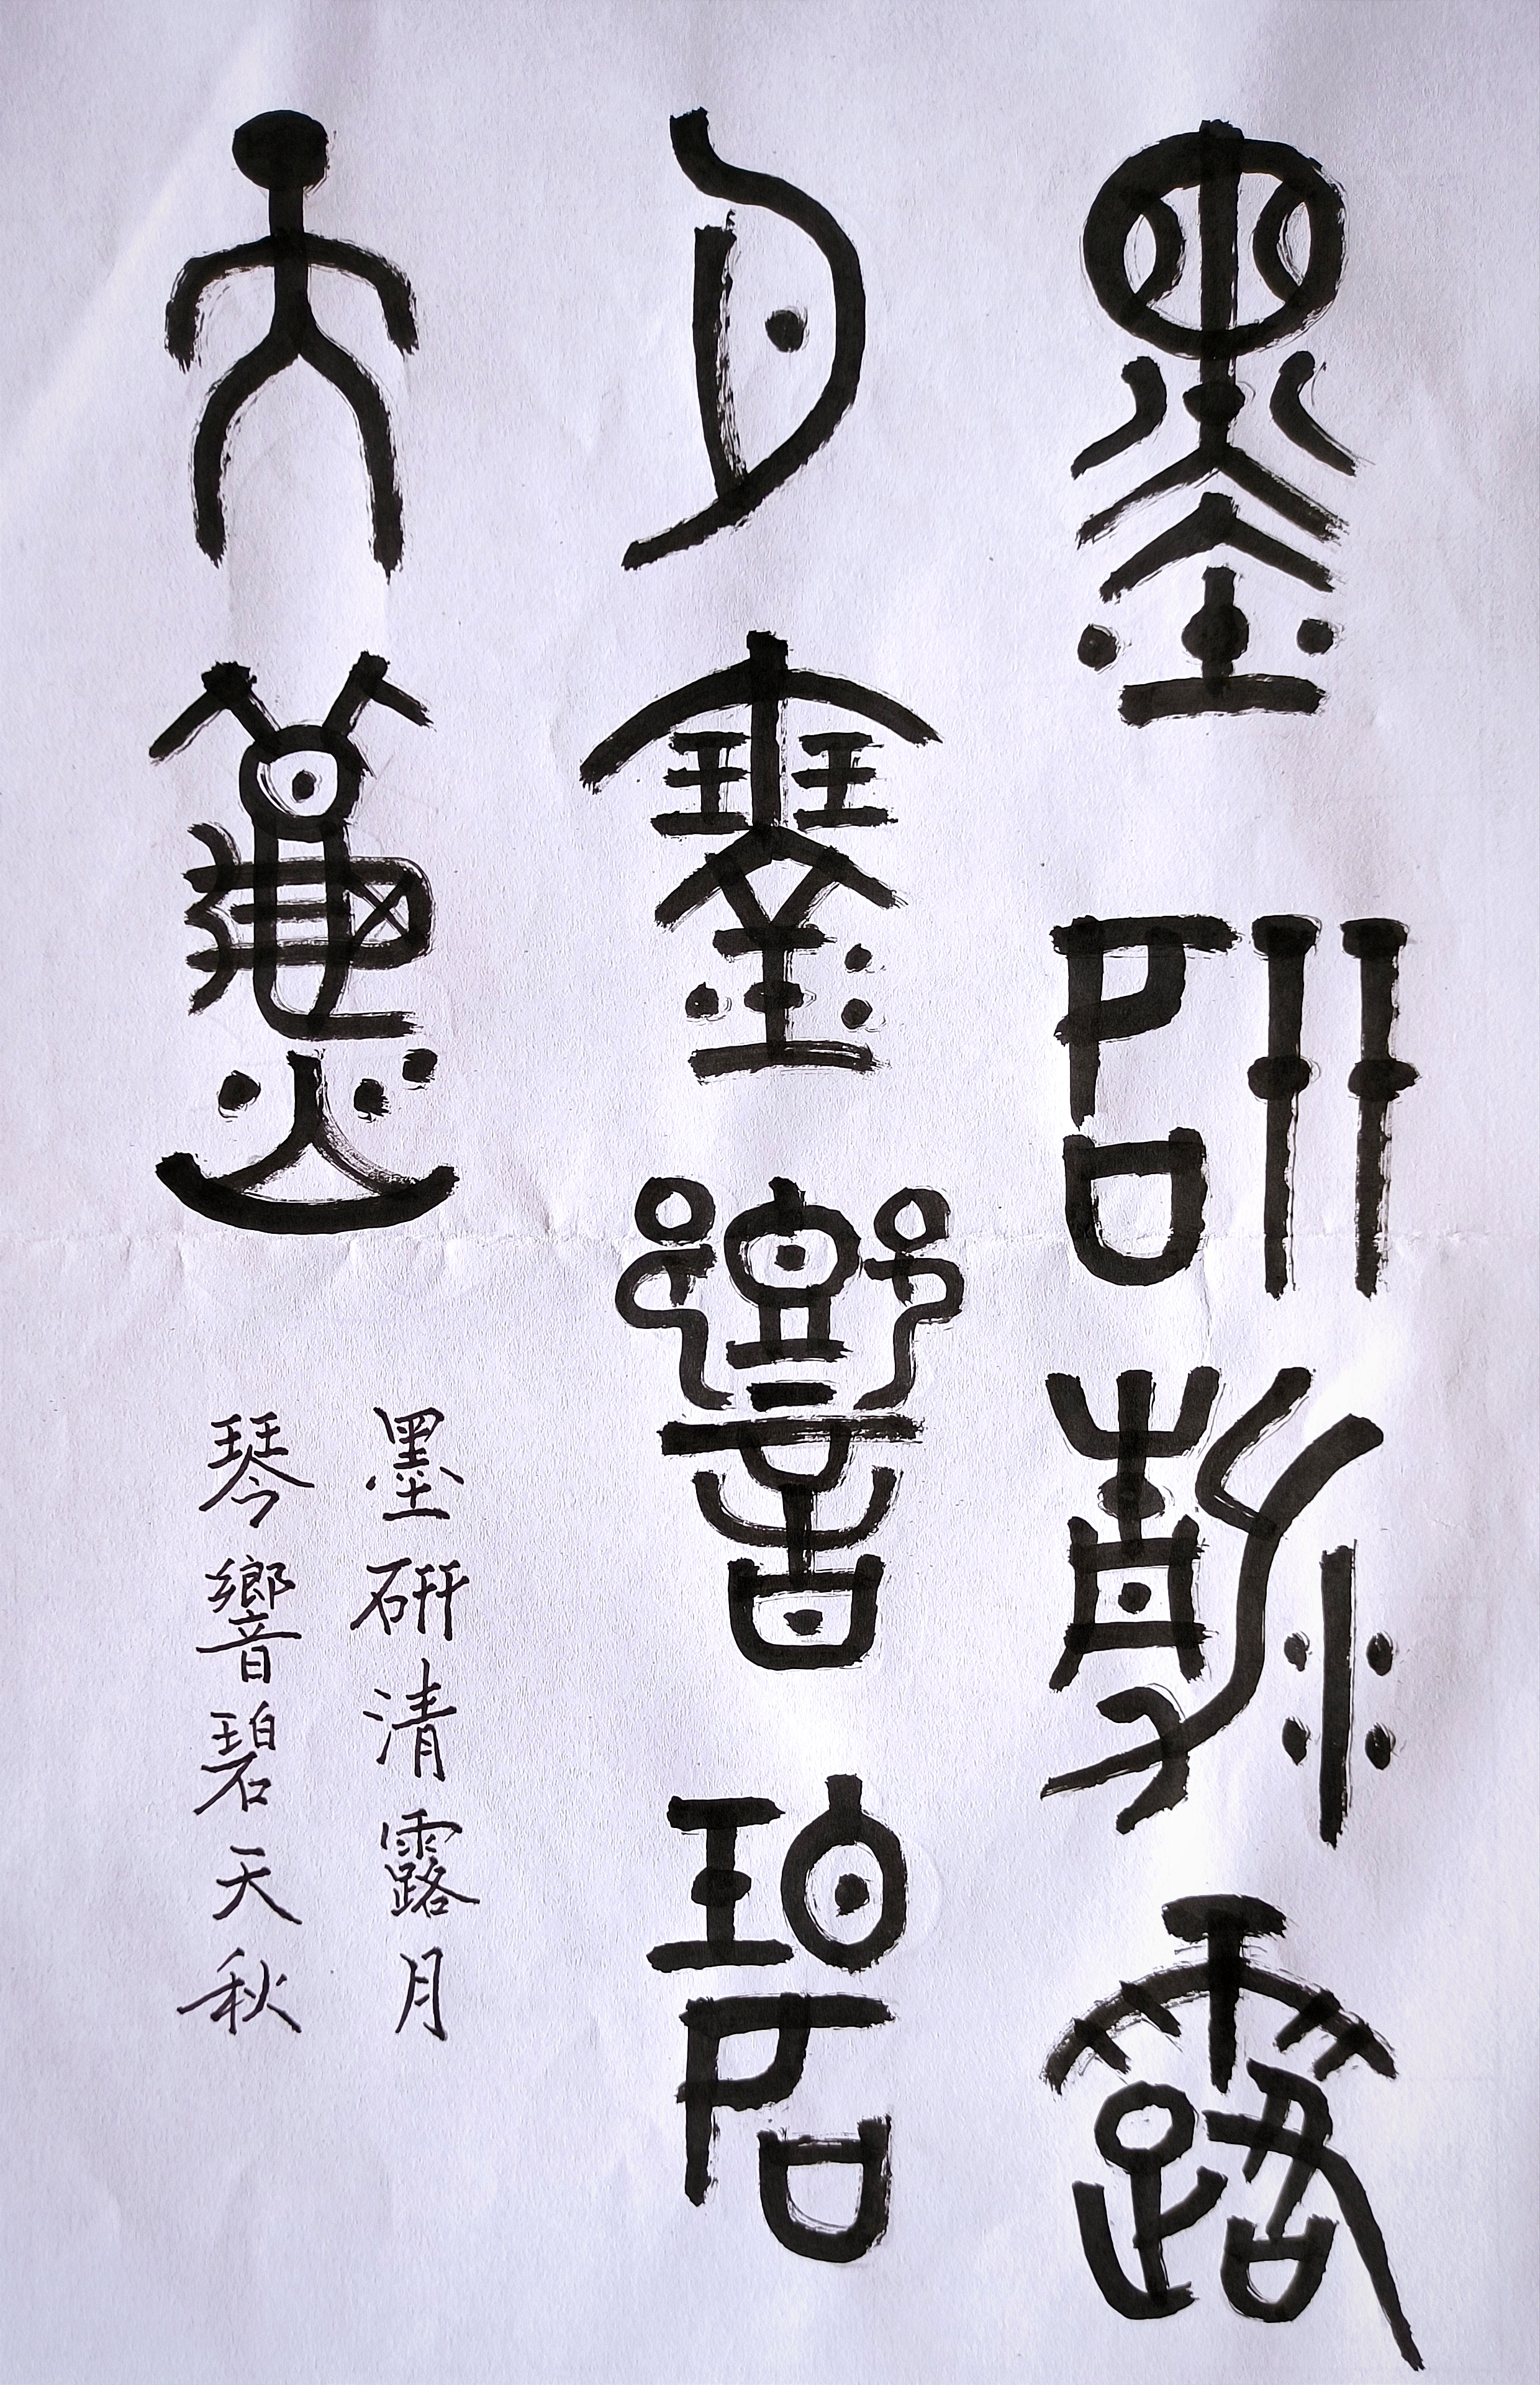 墨硏清露
月琴響碧
天秋
墨硏清露月
琴響碧天秋